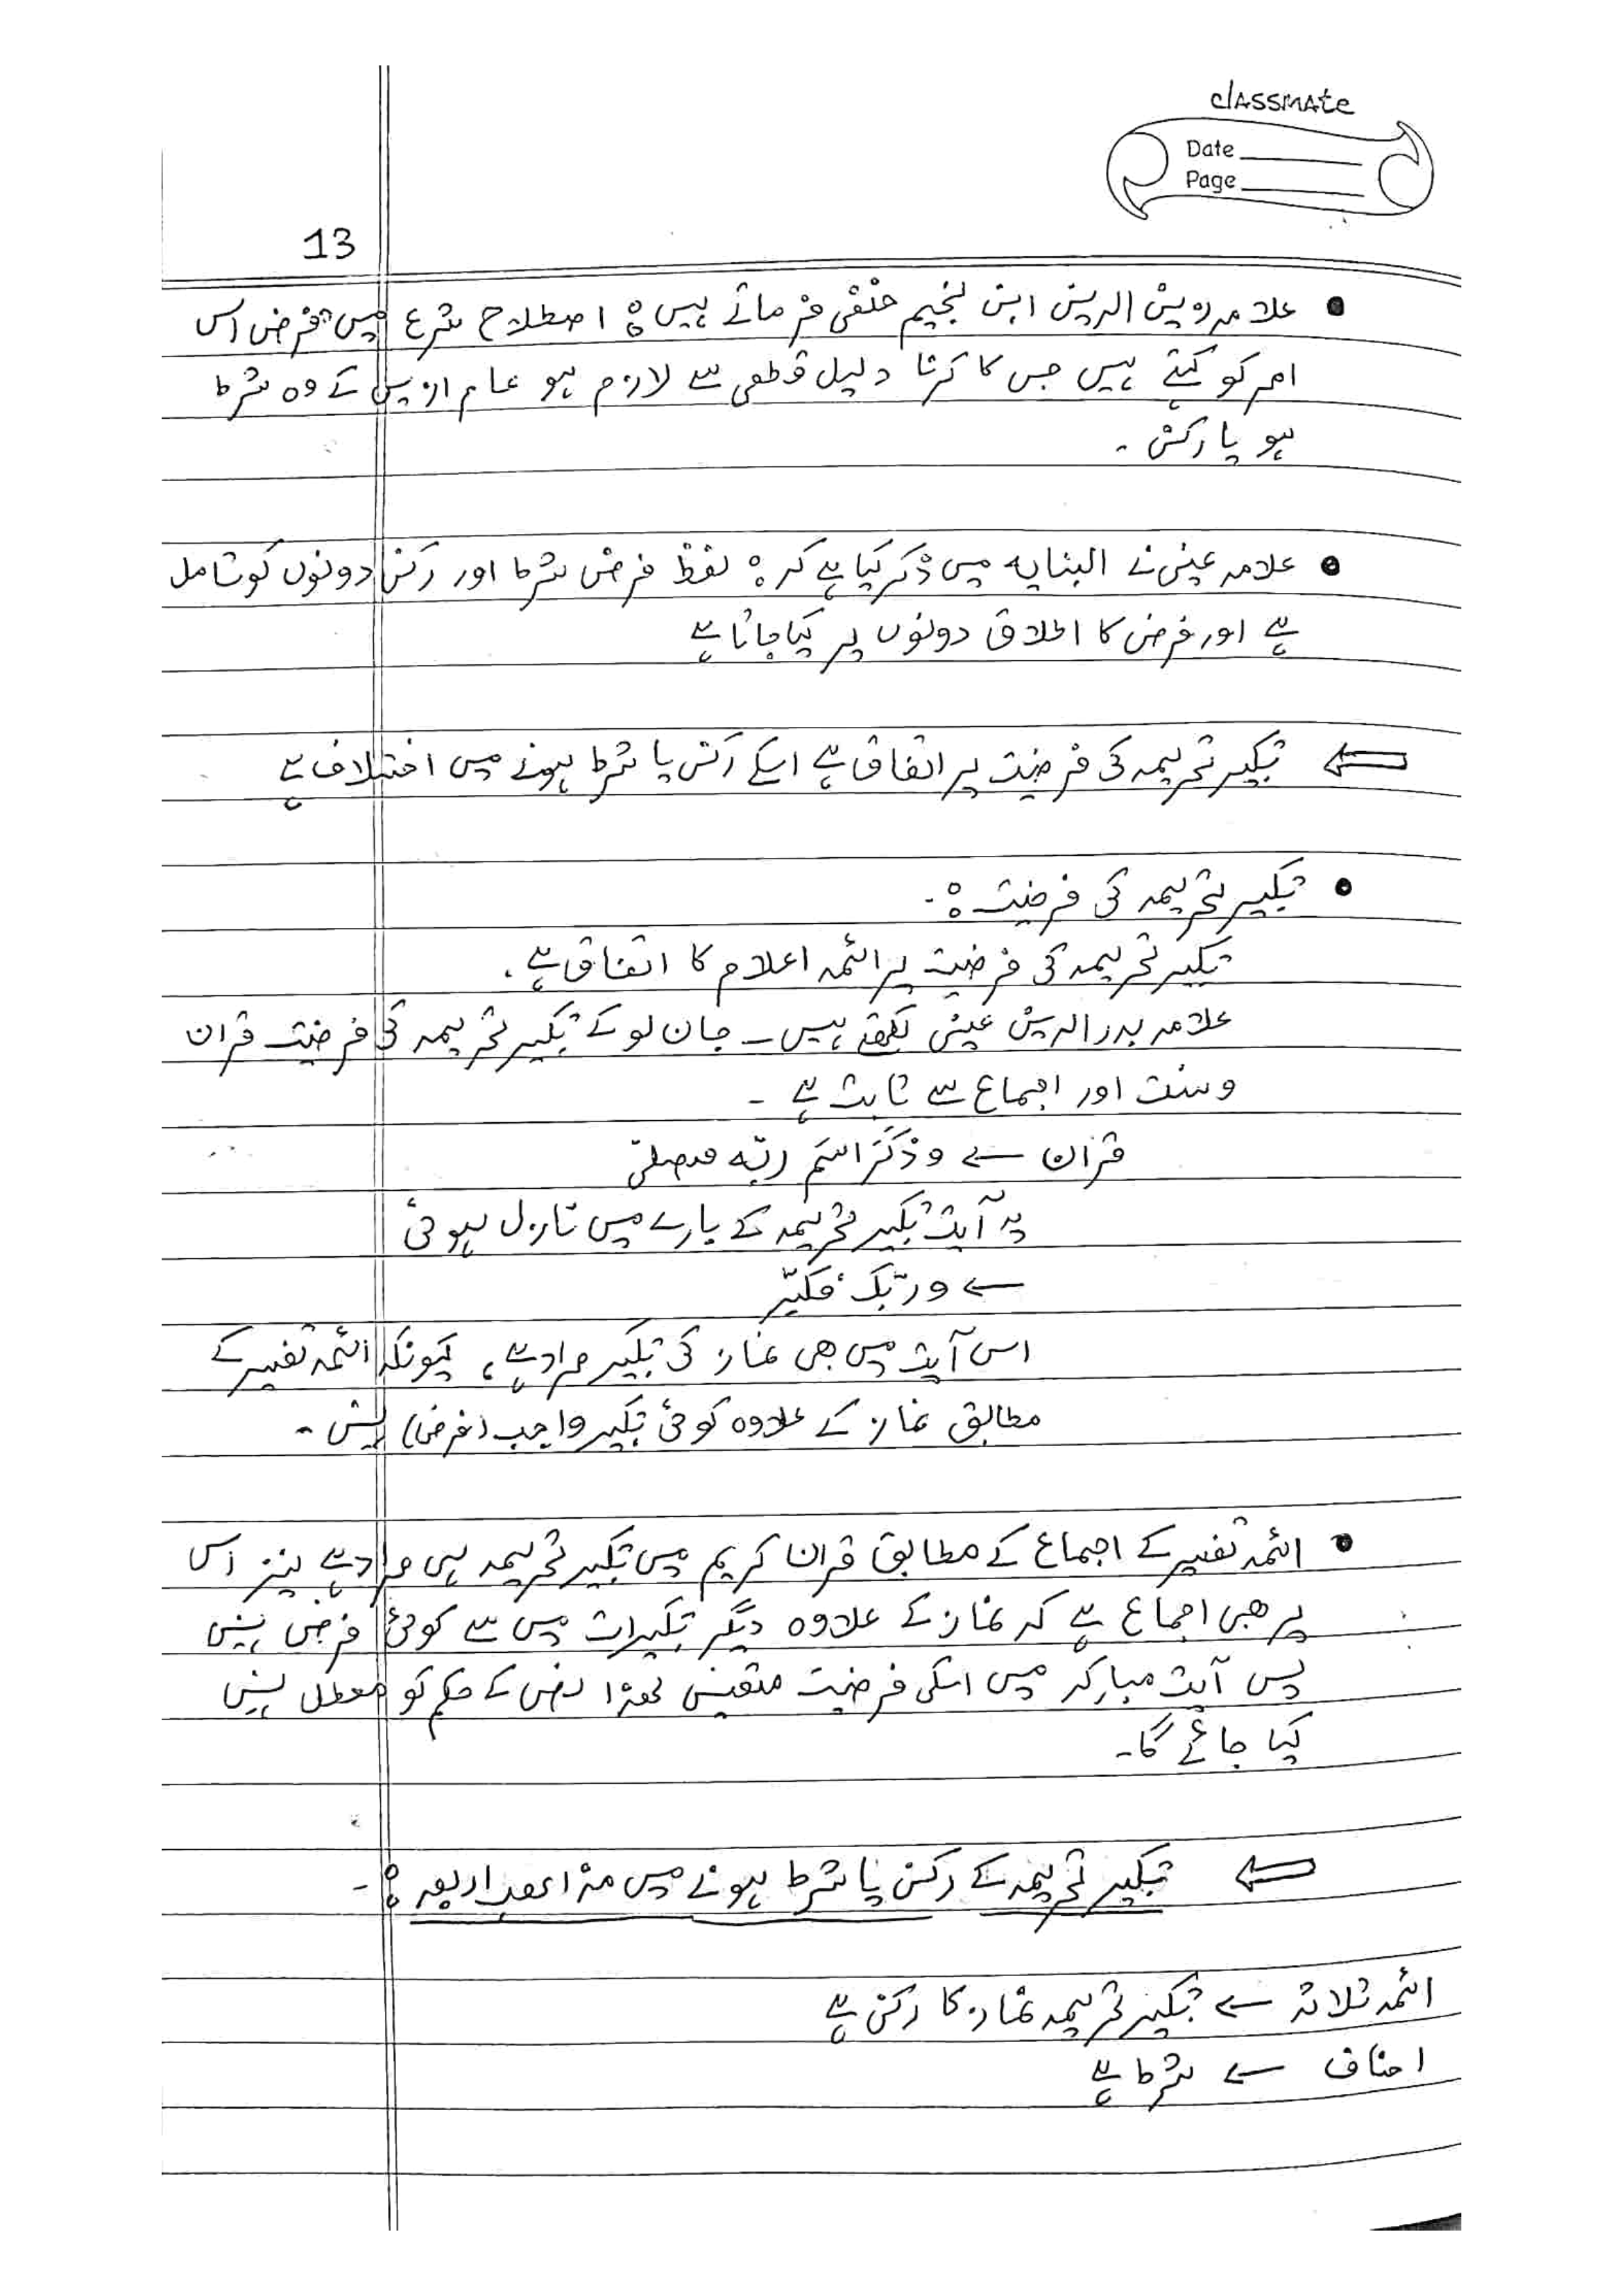 classmate
Date
Page
13
• علامہ زین الدین ابن نجیم حنفی فرماتے ہیں : اصطلاح شرع میں فرض اس
امر کو کہتے ہیں جس کا کرنا دلیل قطعی سے لازم ہو عام ازیں کے وہ شرط
ہو یا رکن ۔
• علامہ عینی نے البنایہ میں ذکر کیا ہے کہ : لفظ فرض شرط اور رکن دونوں کو شامل
ہے اور فرض کا اطلاق دونوں پر کیا جاتا ہے
⇐ تکبیر تحریمہ کی فرضیت پر اتفاق ہے اسکے رکن یا شرط ہونے میں اختلاف ہے
• تکبیر تحریمہ کی فرضیت :-
تکبیر تحریمہ کی فرضیت پر ائمہ اعلام کا اتفاق ہے ۔
علامہ بدر الدین عینی لکھتے ہیں ۔ جان لو کے تکبیر تحریمہ کی فرضیت قران
و سنت اور اجماع سے ثابت ہے ۔
قران ← وذَکَرَ اسْمَ ربّہ فصلیّٰ
یہ آیت تکبیر تحریمہ کے بارے میں نازل ہوئی
← وربّکَ فکبّر
اس آیت میں بھی نماز کی تکبیر مراد ہے ، کیونکہ ائمہ تفسیر کے
مطابق نماز کے علاوہ کوئی تکبیر واجب (فرض) نہیں ۔
• ائمہ تفسیر کے اجماع کے مطابق قران کریم میں تکبیر تحریمہ ہی مراد ہے نیز اس
پر بھی اجماع ہے کہ نماز کے علاوہ دیگر تکبیرات میں سے کوئی فرض نہیں
پس آیت مبارکہ میں اسکی فرضیت متعین لھذا نص کے حکم کو معطل نہیں
کیا جائے گا۔
⇐ تکبیر تحریمہ کے رکن یا شرط ہونے میں مذاھب اربعہ :-
ائمہ ثلاثہ ← تکبیر تحریمہ نماز کا رکن ہے
احناف ← شرط ہے